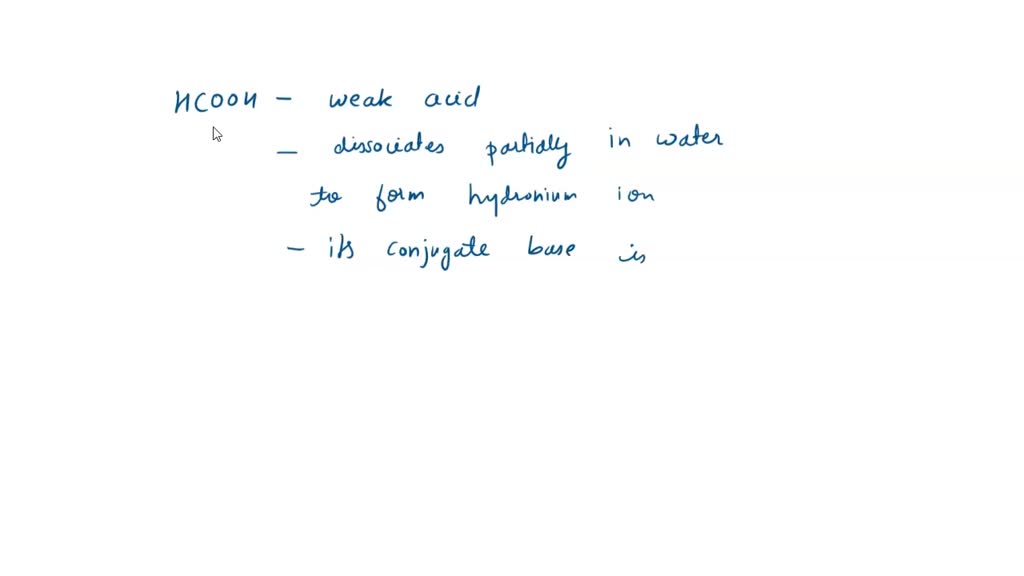 HCOOH - weak acid
- dissociates partially in water
to form hydronium ion
- its conjugate base is